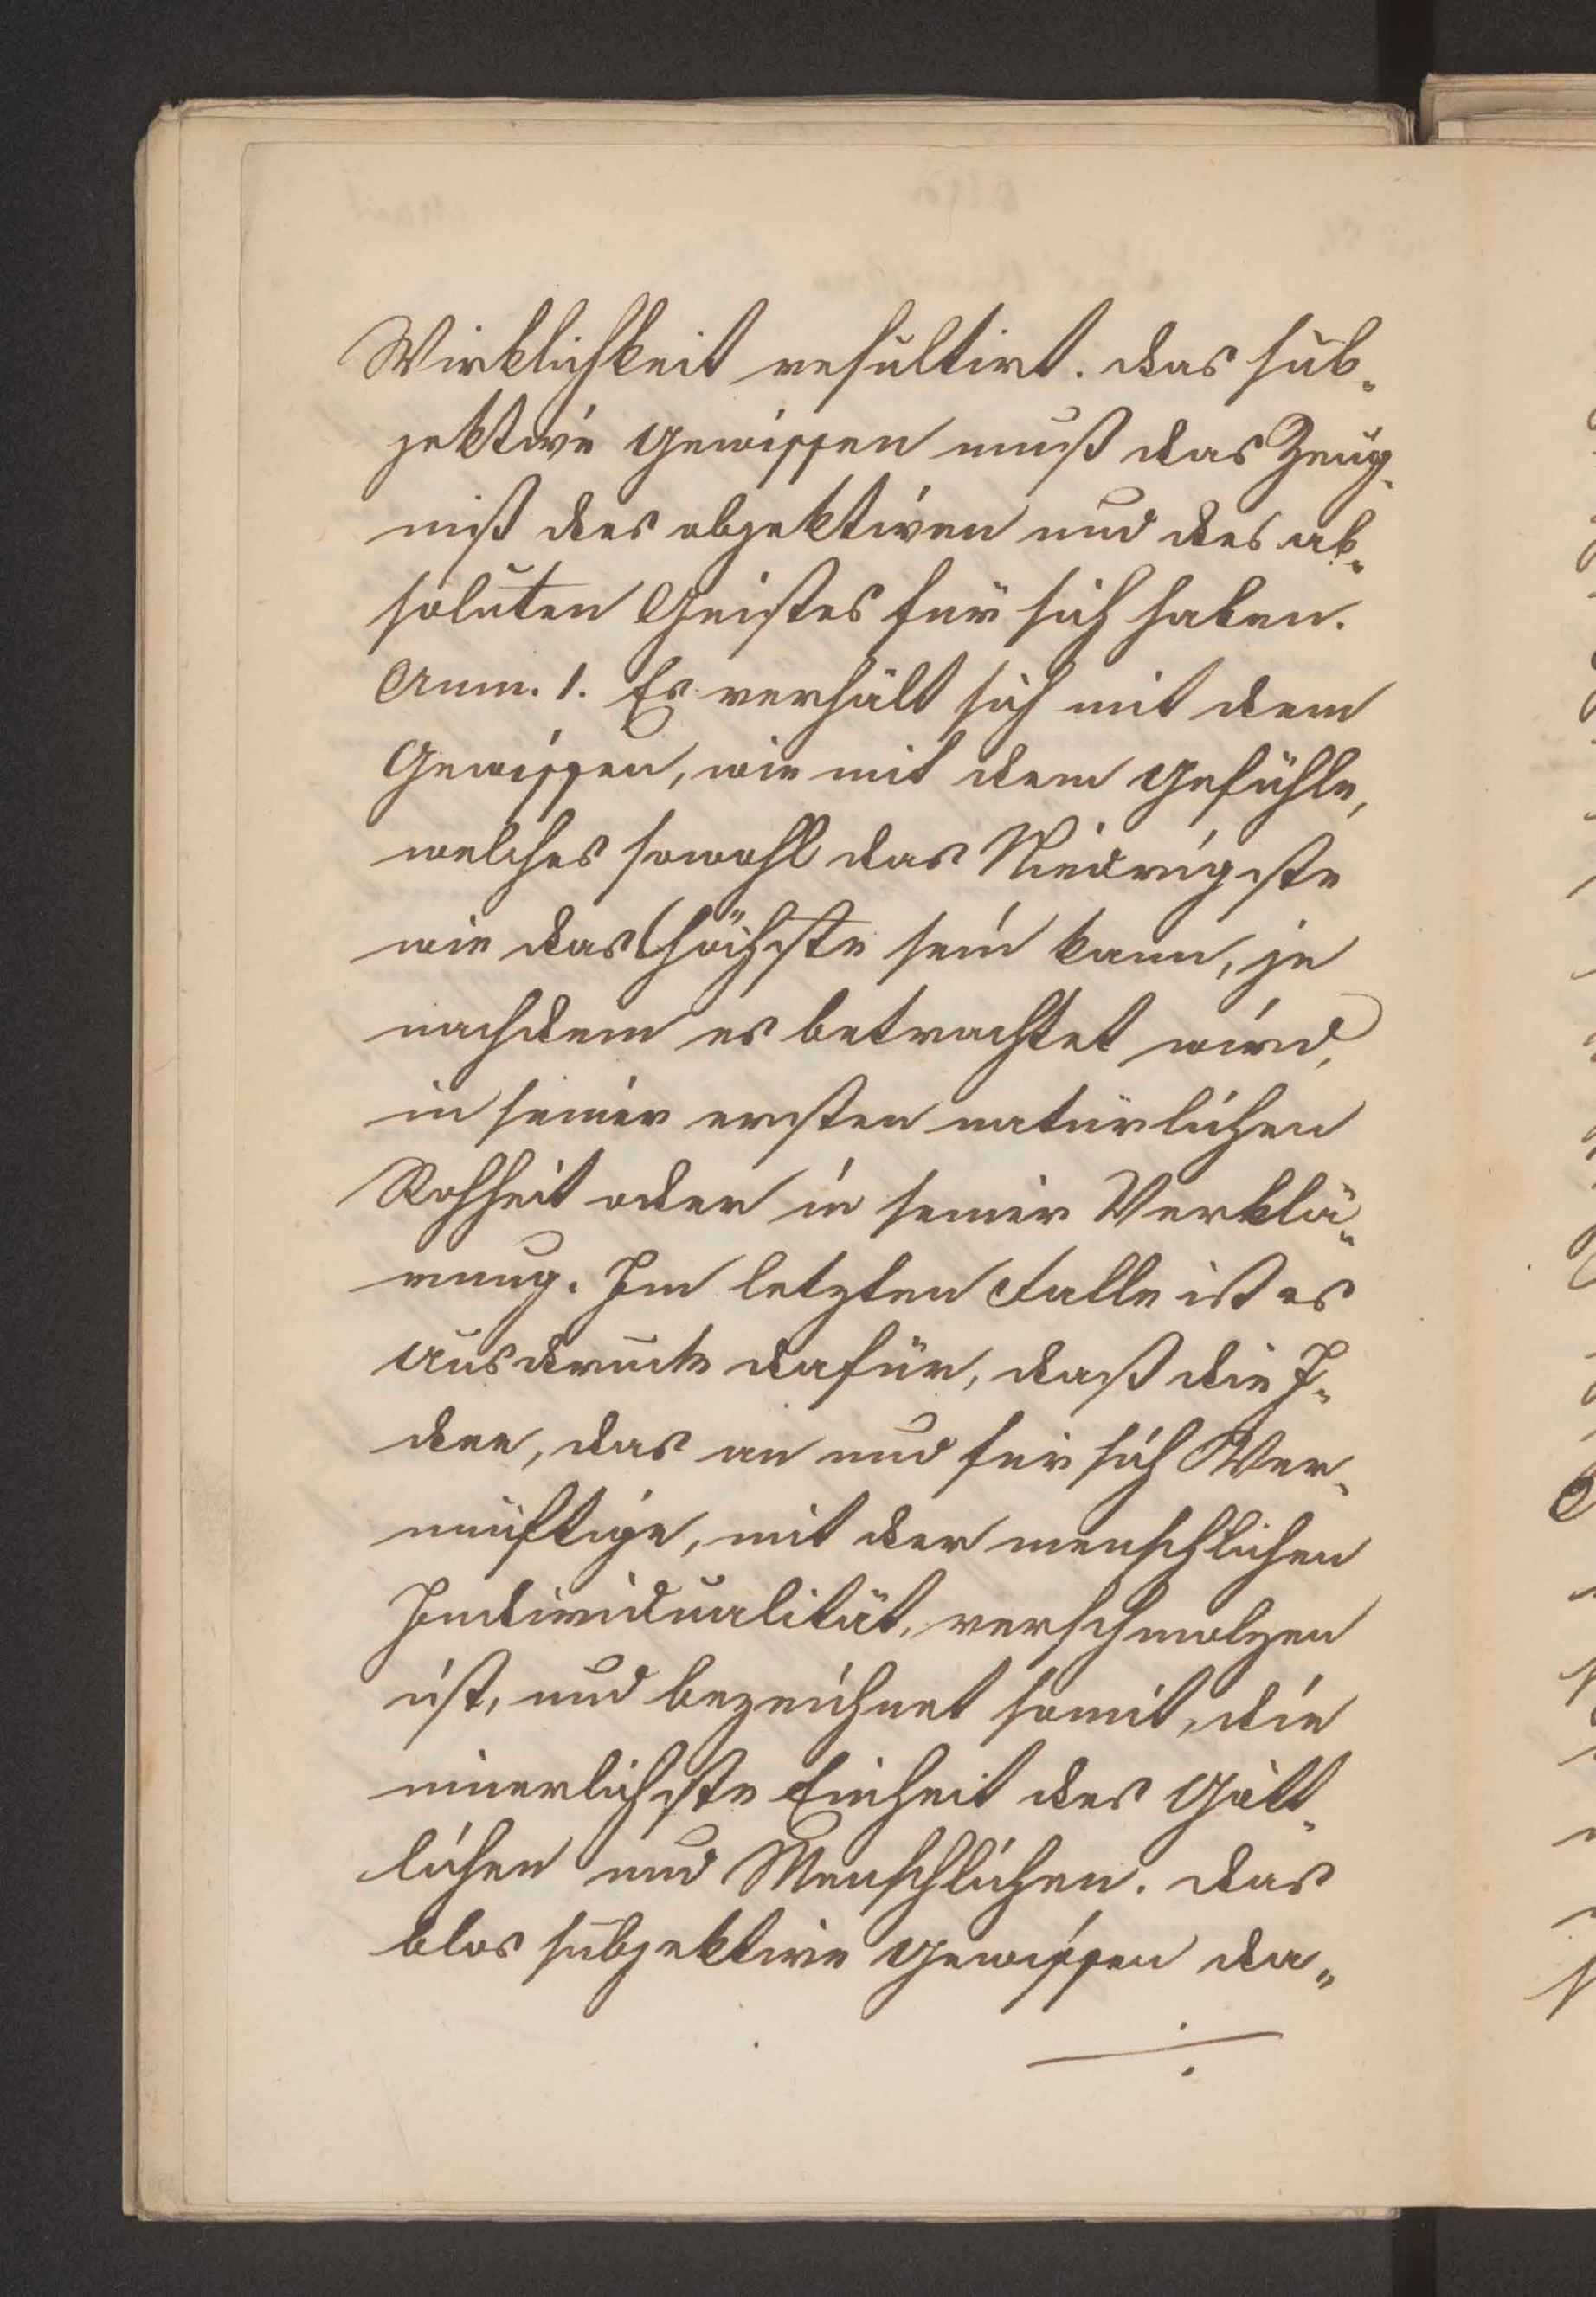 Wirklichkeit resultirt. das sub-
jektive Gewissen muß das Zeug-
niß des objektiven und des ab-
soluten Geistes für sich haben.
Anm. 1. Es verhält sich mit dem
Gewissen, wie mit dem Gefühle,
welches sowohl das Niedrigste
wie das Höchste sein kann, je
nachdem es betrachtet wird,
in seiner ersten natürlichen
Rohheit oder in seiner Verklä-
rung. Im letzten Falle ist es
Ausdruck dafür, daß die I-
dee, das an und für sich Ver-
nünftige, mit der menschlichen
Individualität, verschmolzen
ist, und bezeichnet somit, die
innerlichste Einheit des Gött-
lichen und Menschlichen. das
blos subjektive Gewissen da-